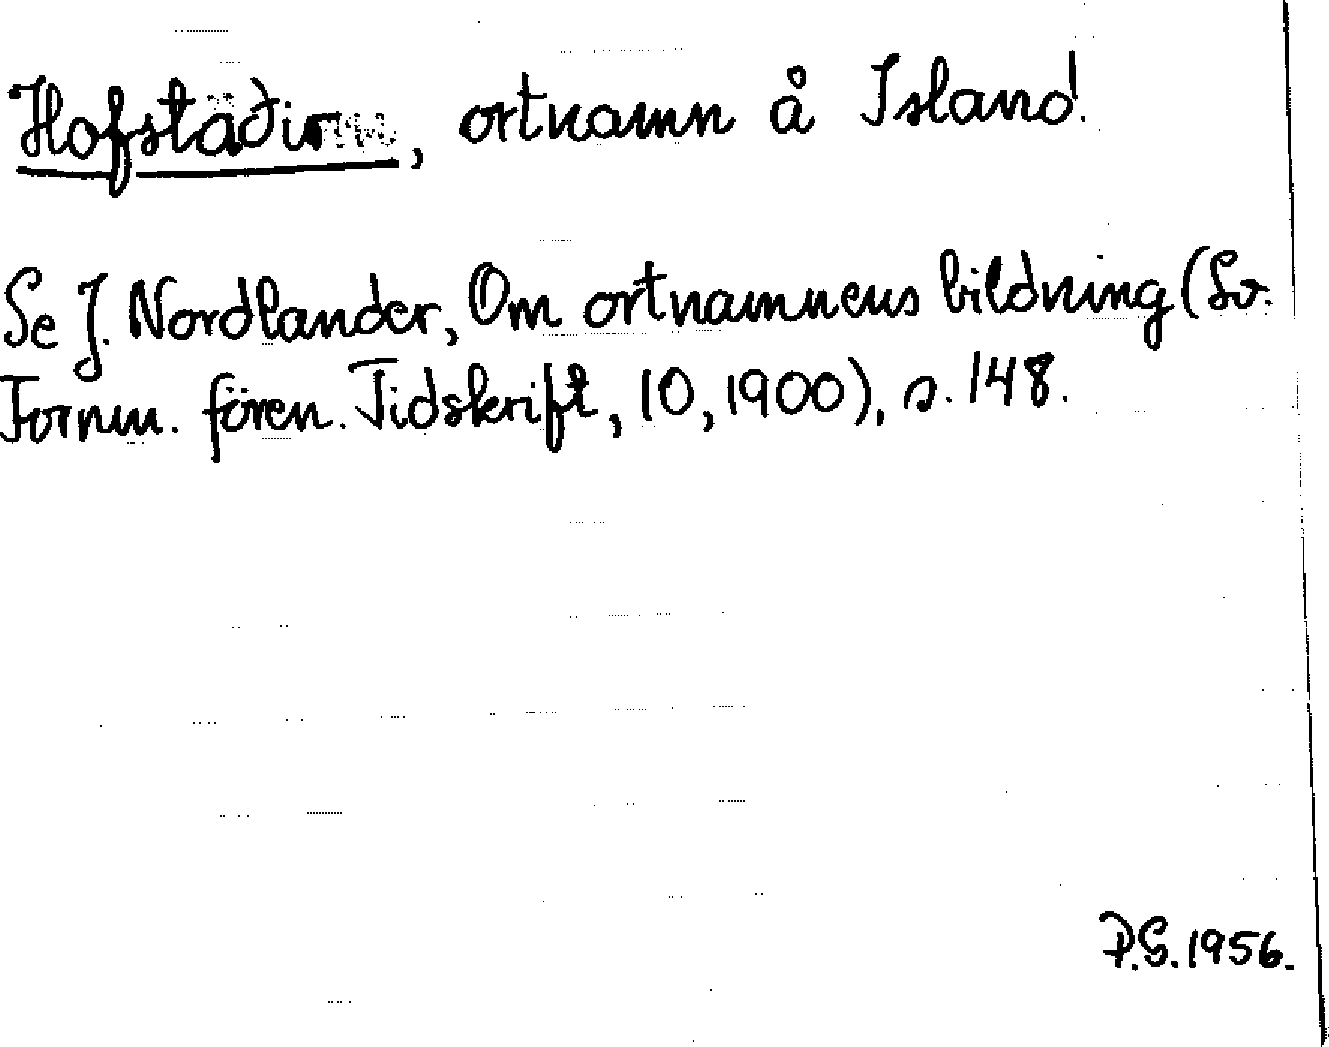 Hofstaðir, ortnamn å Island.
Se J. Nordlander, Om ortnamnens bildning (Sv.
Fornm. fören. Tidskrift, 10, 1900), s. 148.
P.G. 1956.